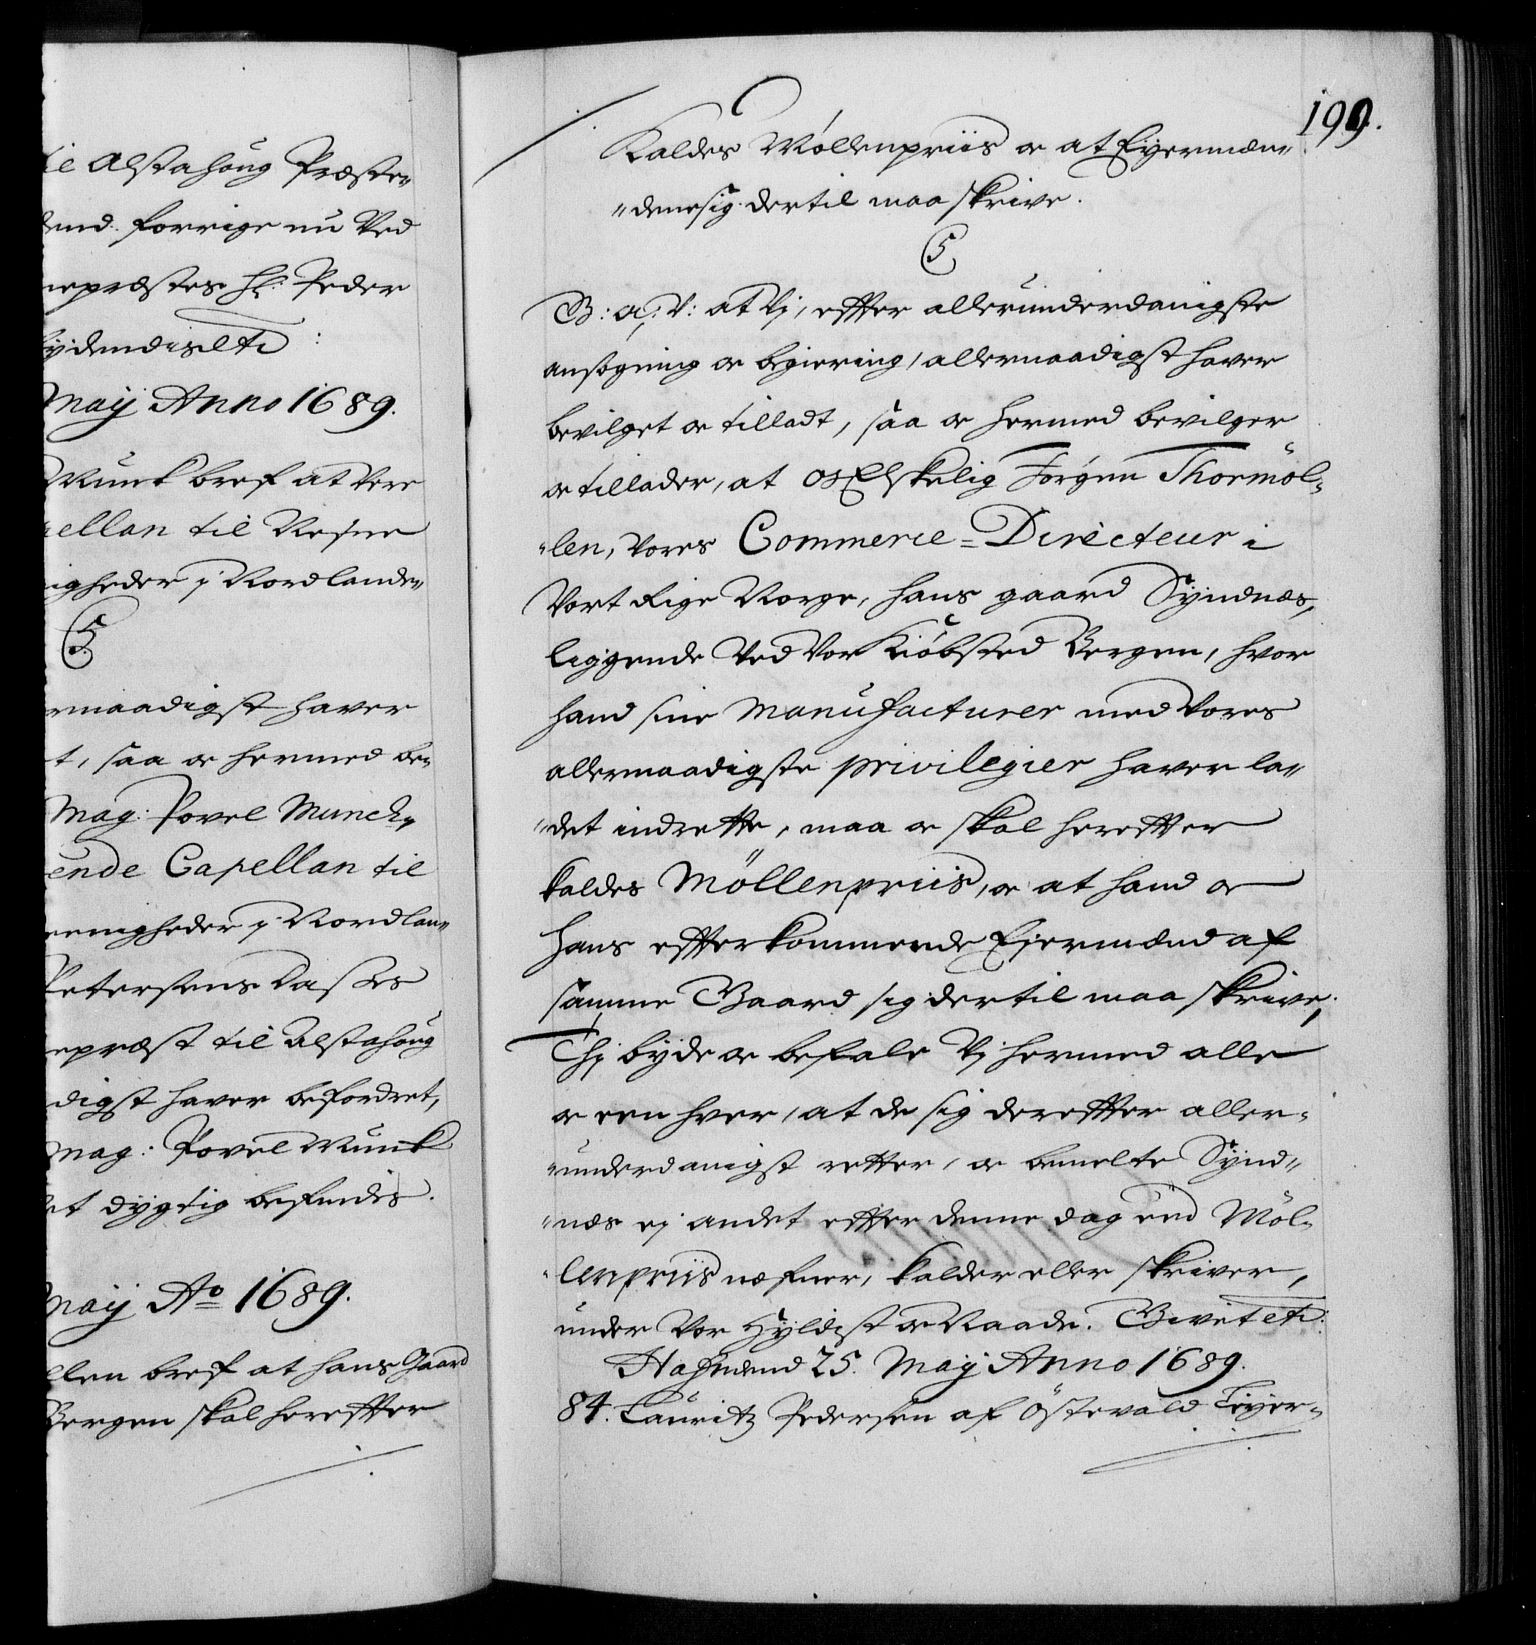 til Alstahoug Præste-
dend. forrige nu Ved
nepræstes Hr: Peder
Tydendis etc:
Maij Anno 1689.
Munk bref at Vere
pellan til Nesne
igheder i Nordlande-
C5.
rnaadigst haver
t, saa oc hermed be-
Mag: Povel Munch,
ende Capellan til
enigheder i Nordlan-
Petersens Dasses
epræst til Alstahoug
digst haver befordret,
Mag: Povel Munk
et dygtig befindis.
Maij Ao 1689.
llen bref at hans Gaard
Bergen skal hereffter
199.
Kaldes Møllenpriis oc at Eyermæn-
dene sig dertil maa skrive.
C5
G: a: V: at Vj, effter allerunderdanigste
ansøgning oc begiering, allernaadigst haver
bevilget oc tilladt, saa oc hermed bevilger
oc tillader, at os Elskelig Jørgen Thormöl-
len, vores Commerce-Directeur i
Vort Rige Norge, hans gaard Syndnæs,
liggende Ved Vor Kiøbsted Bergen, hvor
hand sine Manufacturer med Vores
allernaadigste privilegier haver la-
det indrette, maa oc skal hereffter
kaldes Möllenpriis, oc at hand oc
hans effterkommende Ejermænd af
samme Gaard sig dertil maa skrive;
Thj byde oc befale Vj hermed alle
oc een hver, at de sig dereffter aller-
underdanigst retter, oc bemelte Synd-
næs ej andet effter denne dag end Möl-
lenpriis nefner, kalder eller skriver,
under Vor Hyldist oc Naade. Givet etc:
Hafniend 25. Maij Anno 1689.
84. Lauritz Pedersen af Östevald Leyer-